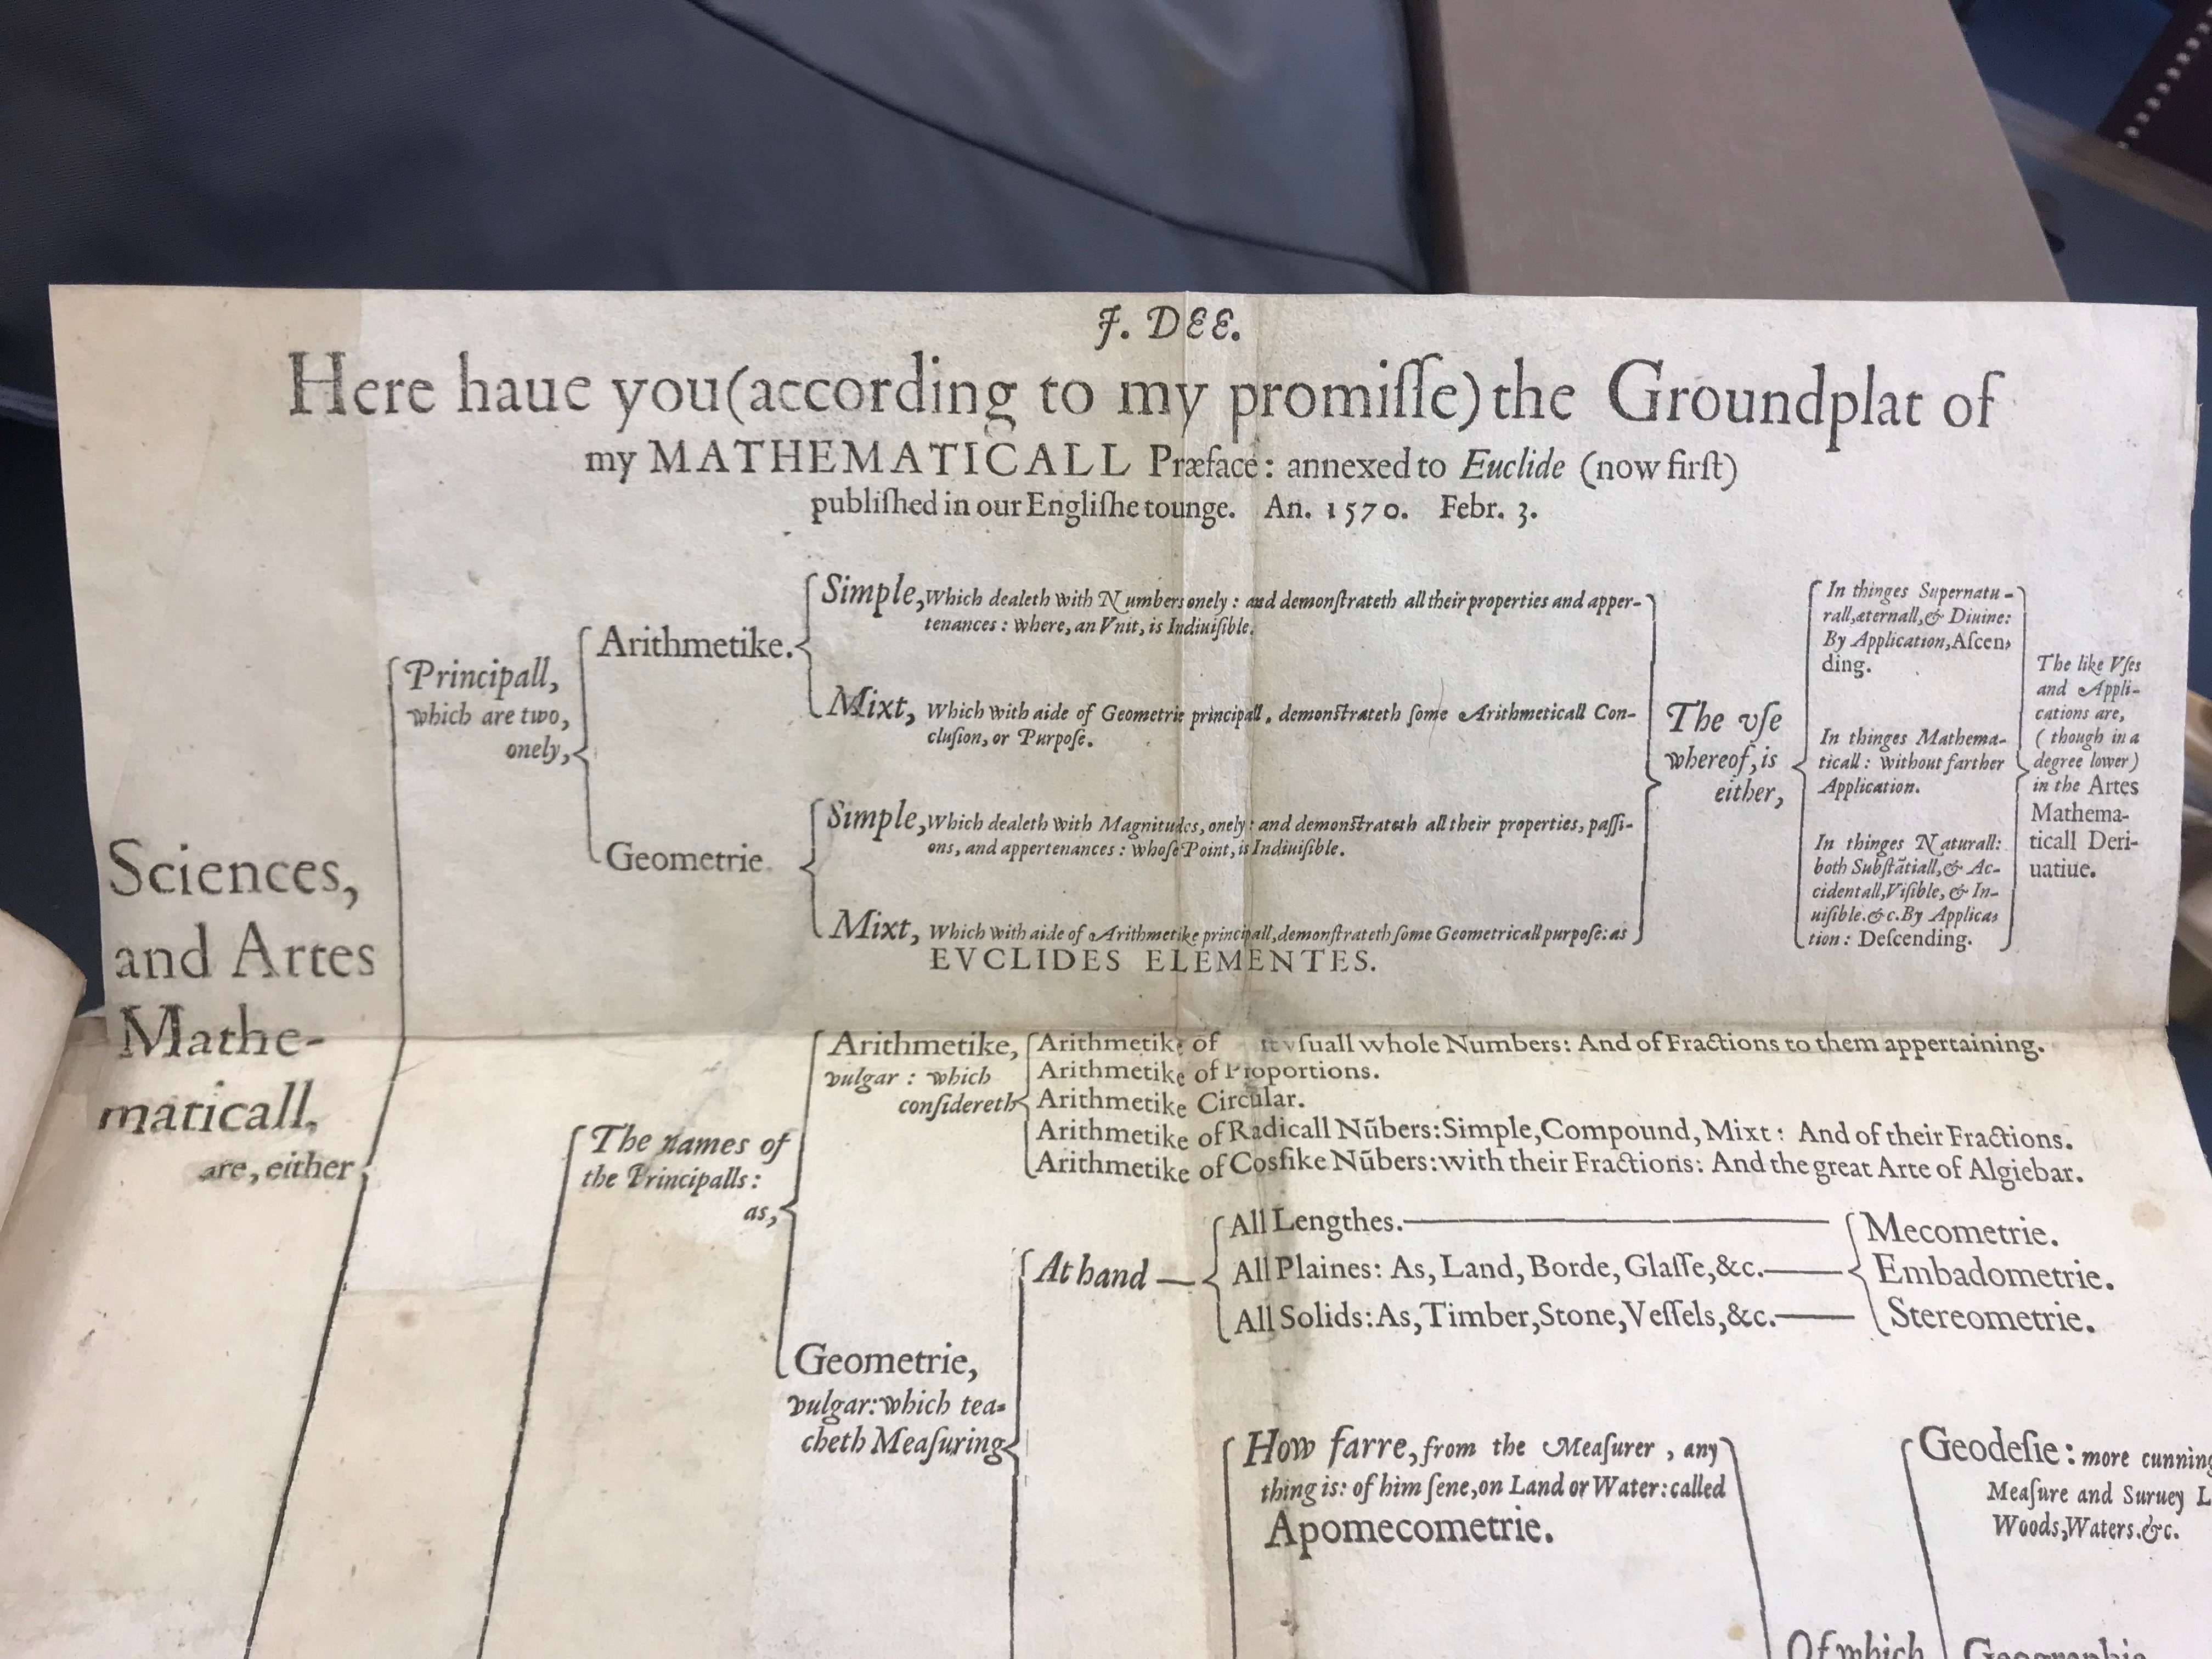 J. DEE.
Here haue you (according to my promiſſe) the Groundplat of
my MATHEMATICALL Præface: annexed to Euclide (now firſt)
publiſhed in our Engliſhe tounge. An. 1570. Febr. 3.
Sciences,
and Artes
Mathe-
maticall,
are, either
Principall,
which are two,
onely,
Arithmetike.
Simple, which dealeth with Numbers onely: and demonſtrateth all their properties and apper-
tenances: where, an Vnit, is Indiuiſible.
Mixt, which with aide of Geometrie principall, demonſtrateth ſome Arithmeticall Con-
cluſion, or Purpoſe.
Geometrie.
Simple, which dealeth with Magnitudes, onely: and demonſtrateth all their properties, paſſi-
ons, and appertenances: whoſe Point, is Indiuiſible.
Mixt, which with aide of Arithmetike principall, demonſtrateth ſome Geometricall purpoſe: as
EVCLIDES ELEMENTES.
The vſe
whereof, is
either,
In thinges Supernatu-
rall, æternall, & Diuine:
By Application, Aſcen-
ding.
In thinges Mathema-
ticall: without farther
Application.
In thinges Naturall:
both Subſtãtiall, & Ac-
cidentall, Viſible, & In-
uiſible. &c. By Applica-
tion: Deſcending.
The like Vſes
and Appli-
cations are,
(though in a
degree lower)
in the Artes
Mathema-
ticall Deri-
uatiue.
The names of
the Principalls:
as,
Arithmetike,
vulgar: which
conſidereth
Arithmetike of vſuall whole Numbers: And of Fractions to them appertaining.
Arithmetike of Proportions.
Arithmetike Circular.
Arithmetike of Radicall Nũbers: Simple, Compound, Mixt: And of their Fractions.
Arithmetike of Coſsike Nũbers: with their Fractions: And the great Arte of Algiebar.
Geometrie,
vulgar: which tea-
cheth Meaſuring
At hand
All Lengthes.
All Plaines: As, Land, Borde, Glaſſe, &c.
All Solids: As, Timber, Stone, Veſſels, &c.
Mecometrie.
Embadometrie.
Stereometrie.
How farre, from the Meaſurer, any
thing is: of him ſene, on Land or Water: called
Apomecometrie.
Of which
Geodeſie: more cunning
Meaſure and Suruey L
Woods, Waters. &c.
Geographie